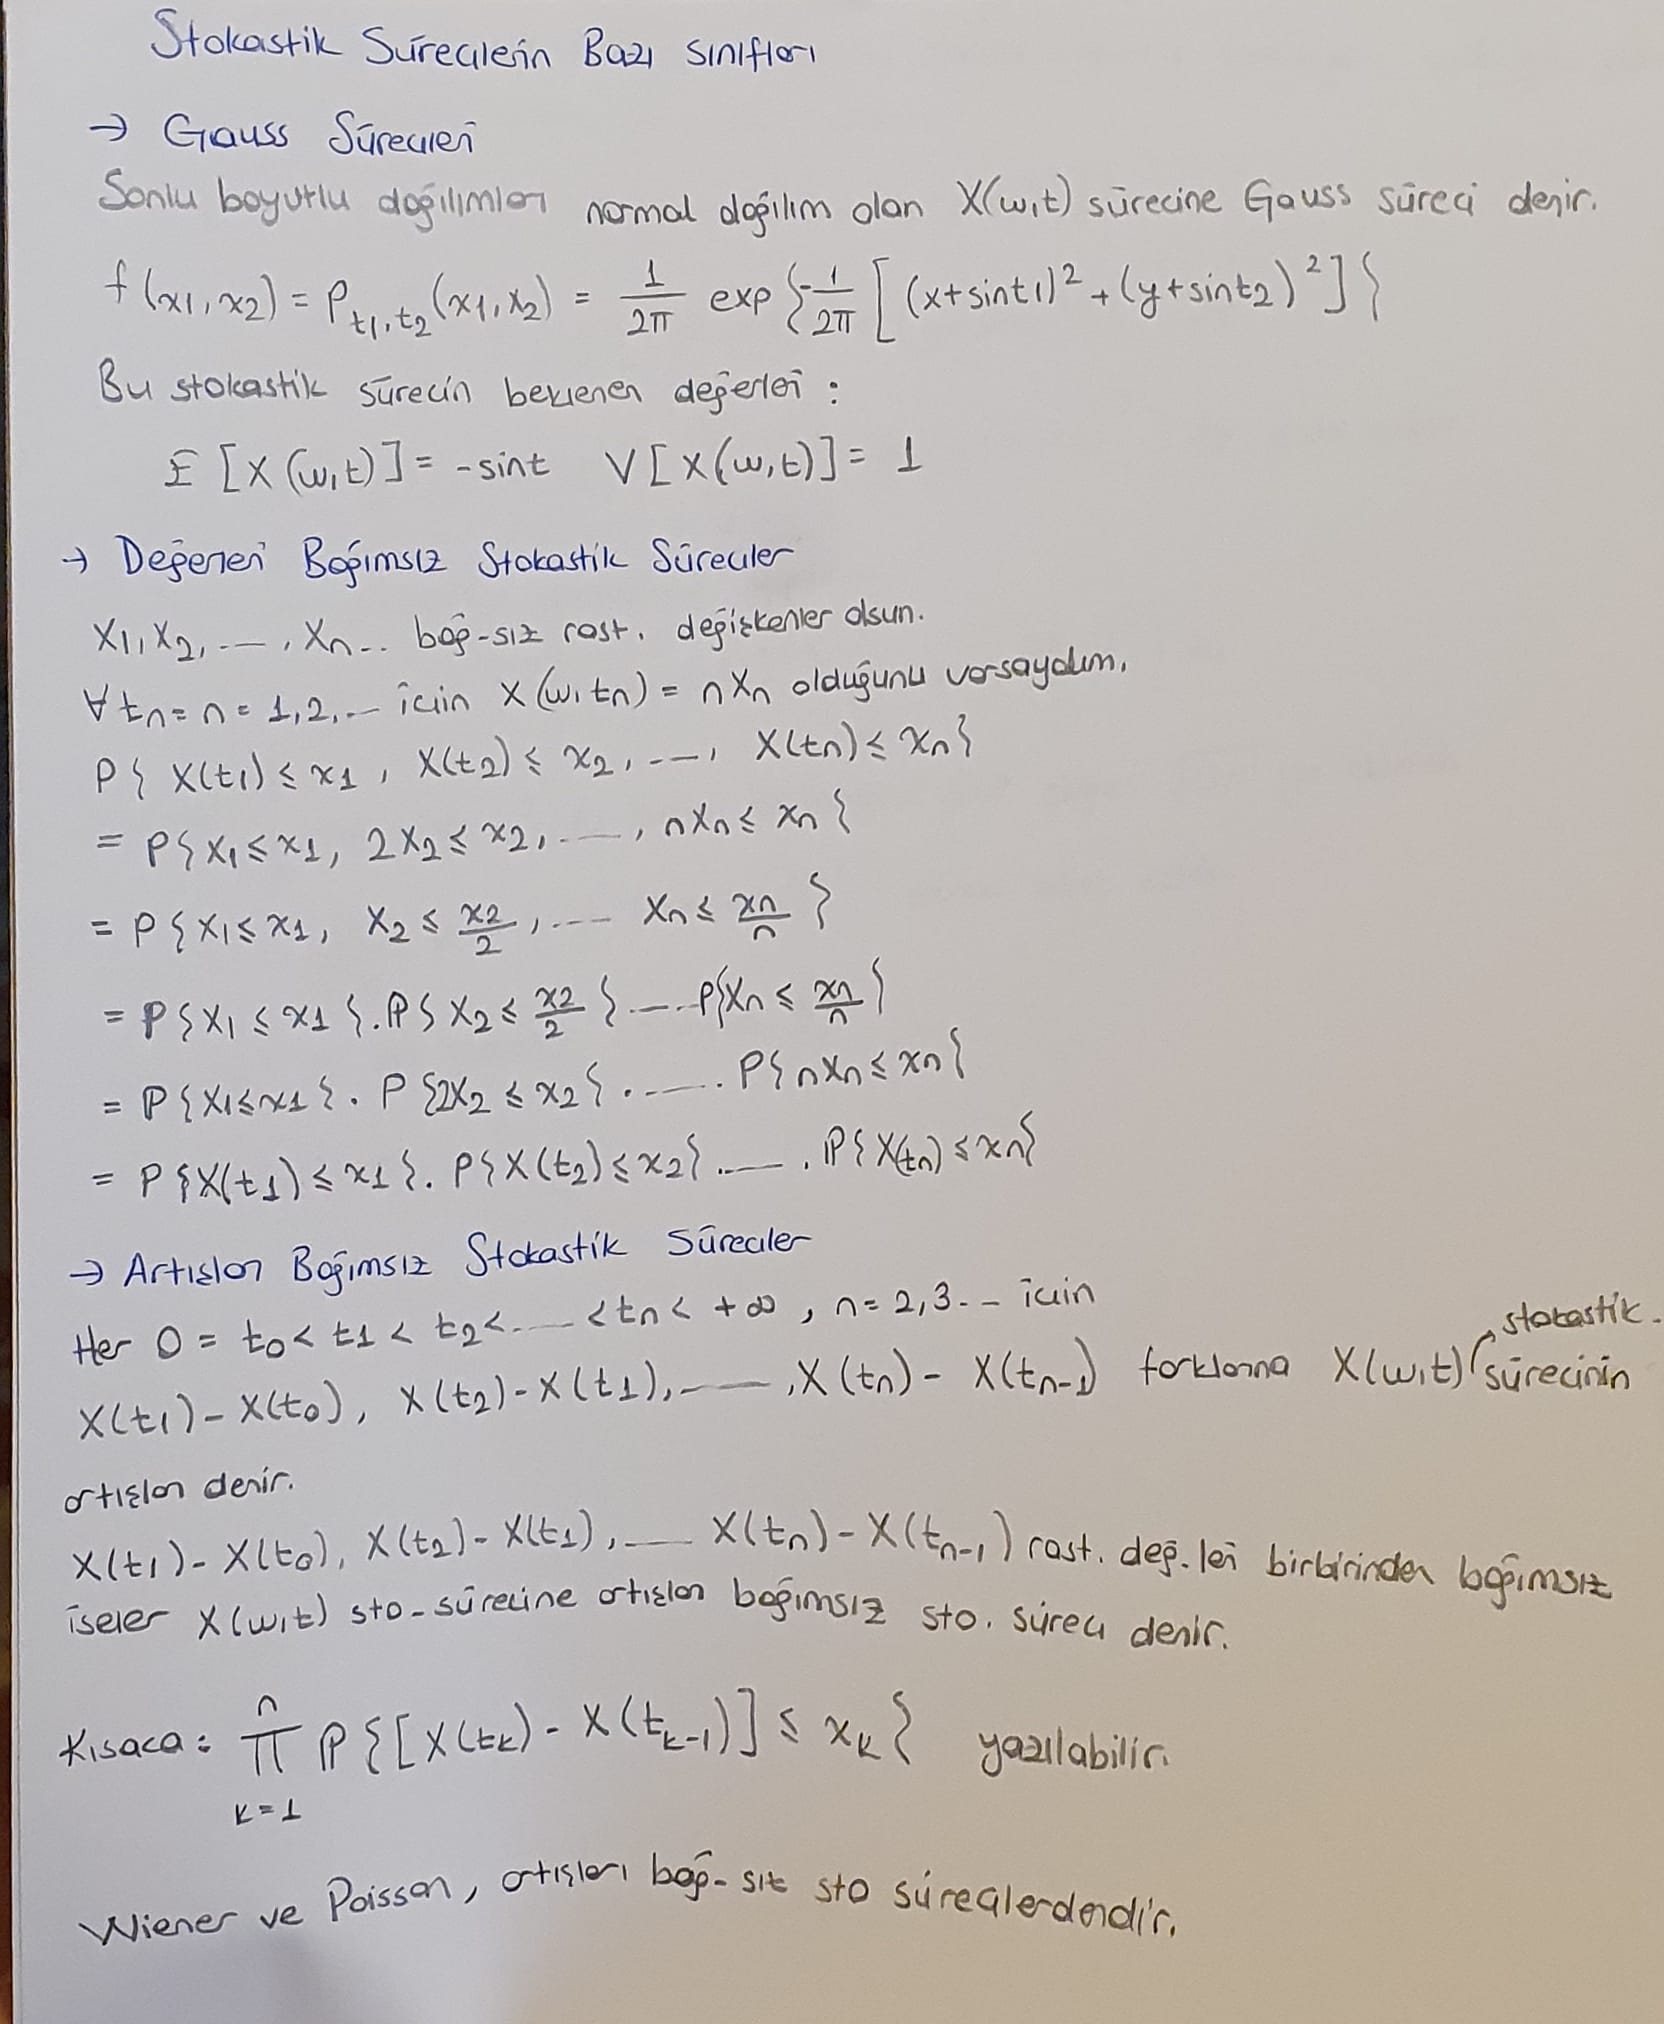 Stokastik Süreçlerin Bazı sınıfları
→ Gauss Süreçleri
Sonlu boyutlu dağılımları normal dağılım olan X(w,t) sürecine Gauss süreci denir.
f(x1,x2) = P_{t1,t2}(x1,x2) = 1/2π exp{-1/2π [(x+sint1)² + (y+sint2)²]}
Bu stokastik sürecin beklenen değerleri :
E[X(w,t)] = -sint V[X(w,t)] = 1
→ Değerleri Bağımsız Stokastik Süreçler
X1, X2, ..., Xn.. bağ-sız rast. değişkenler olsun.
∀ tn = n = 1,2,... için X(w,tn) = nXn olduğunu varsayalım.
P{X(t1) ≤ x1, X(t2) ≤ x2, ..., X(tn) ≤ xn}
= P{X1 ≤ x1, 2X2 ≤ x2, ..., nXn ≤ xn}
= P{X1 ≤ x1, X2 ≤ x2/2, ... Xn ≤ xn/n}
= P{X1 ≤ x1}.P{X2 ≤ x2/2} ... P{Xn ≤ xn/n}
= P{X1 ≤ x1}. P{2X2 ≤ x2}. ... . P{nXn ≤ xn}
= P{X(t1) ≤ x1}. P{X(t2) ≤ x2}. ... . P{X(tn) ≤ xn}
→ Artışları Bağımsız Stokastik Süreçler
Her 0 = t0 < t1 < t2 < ... < tn < +∞, n = 2,3.. için
X(t1) - X(t0), X(t2) - X(t1), ..., X(tn) - X(tn-1) farklarına X(w,t) stokastik sürecinin
artışları denir.
X(t1) - X(t0), X(t2) - X(t1), ... X(tn) - X(tn-1) rast. değ. leri birbirinden bağımsız
iseler X(w,t) sto-sürecine artışları bağımsız sto. süreci denir.
Kısaca: ∏_{k=1}^{n} P{[X(tk) - X(tk-1)] ≤ xk} yazılabilir.
Wiener ve Poisson, artışları bağ-sız sto süreçlerdendir.